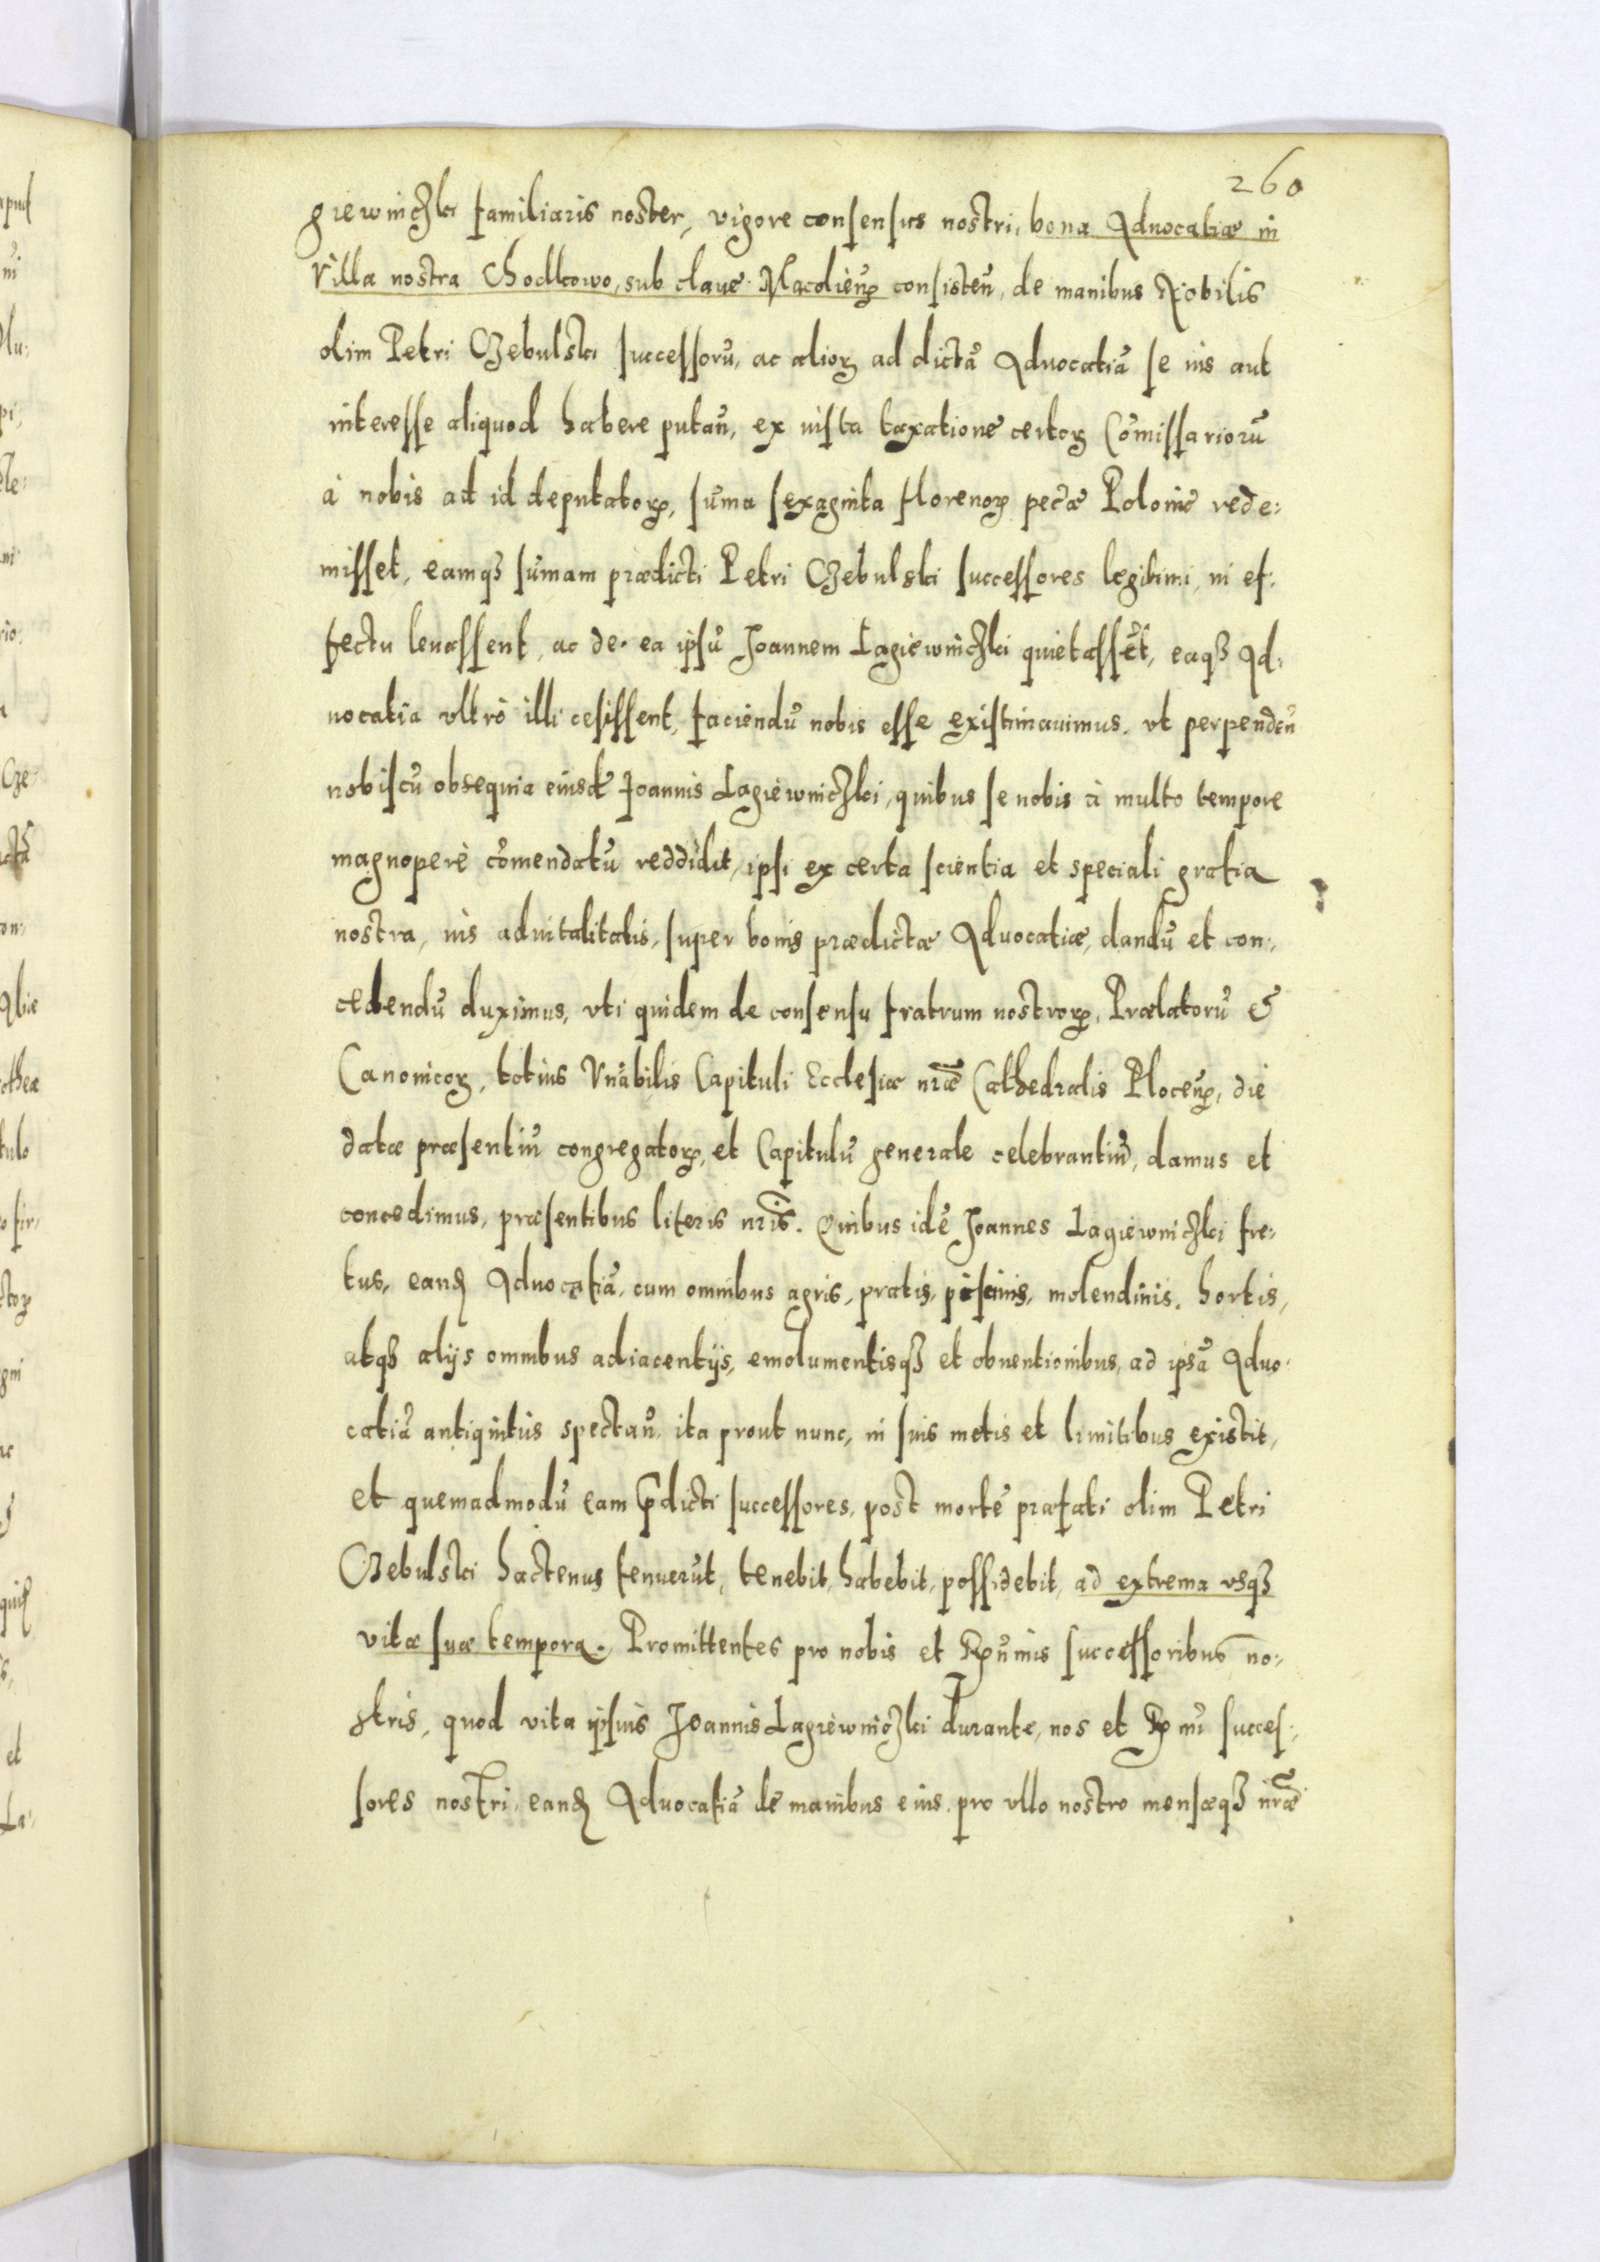 260
giewniczki familiaris noster, vigore consensus nostri, bona Aduocatiæ in
Villa nostra Chodkowo, sub claue consisteñ, de manibus Nobilis
olim Petri Czebulski successorũ, ac alioꝝ ad dictã Aduocatiã se ius aut
interesse aliquod habere putañ, ex iusta taxatione certoꝝ Cõmissariorũ
à nobis ad id deputatoꝝ, sũma sexaginta florenoꝝ pecæ Polonic̃ rede:
misset, eamqꝫ sũmam prædicti Petri Czebulski successores legitimi, in ef:
fectu leuassent, ac de ea ipsũ Joannem Łagiewniczki quietassẽt, eaqꝫ Ad:
uocatia vltrò illi cesissent, faciendũ nobis esse existimauimus, vt perpendeñ
nobiscũ obsequia eiusdẽ Joannis Łagiewniczki, quibus se nobis à multo tempore
magnoperè cõmendatũ reddidit, ipsi ex certa scientia et speciali gratia
nostra, ius aduitalitatis, super bonis prædictæ Aduocatiæ, dandũ et con:
cedendũ duximus, vti quidem de consensu fratrum nostroꝝ, Prælatorũ &
Canonicoꝝ, totius Vñabilis Capituli Ecclesiæ nr̃æ Cathedralis Ploceñ, die
datæ præsentiũ congregatoꝝ, et Capitulũ generale celebrantiũ, damus et
concedimus, præsentibus literis nr̃is. Quibus idẽ Joannes Łagiewniczki fre:
tus, eandẽ Aduocatiã, cum omnibus agris, pratis, piscinis, molendinis, hortis,
atqꝫ alijs omnibus adiacentijs, emolumentisqꝫ et obuentionibus, ad ipsã Aduo:
catiã antiquitùs spectañ, ita prout nunc, in suis metis et limitibus existit,
et quemadmodũ eam p̃dicti successores, post mortẽ præfati olim Petri
Czebulski hactenus tenuerũt, tenebit, habebit, possidebit, ad extrema vsqꝫ
vitæ suæ tempora. Promittentes pro nobis et Rṽmis successoribus no:
stris, quod vita ipsius Joannis Łagiewniczki durante, nos et Rṽmi succes:
sores nostri, eandẽ Aduocatiã de manibus eius, pro vllo nostro mensæqꝫ nr̃æ